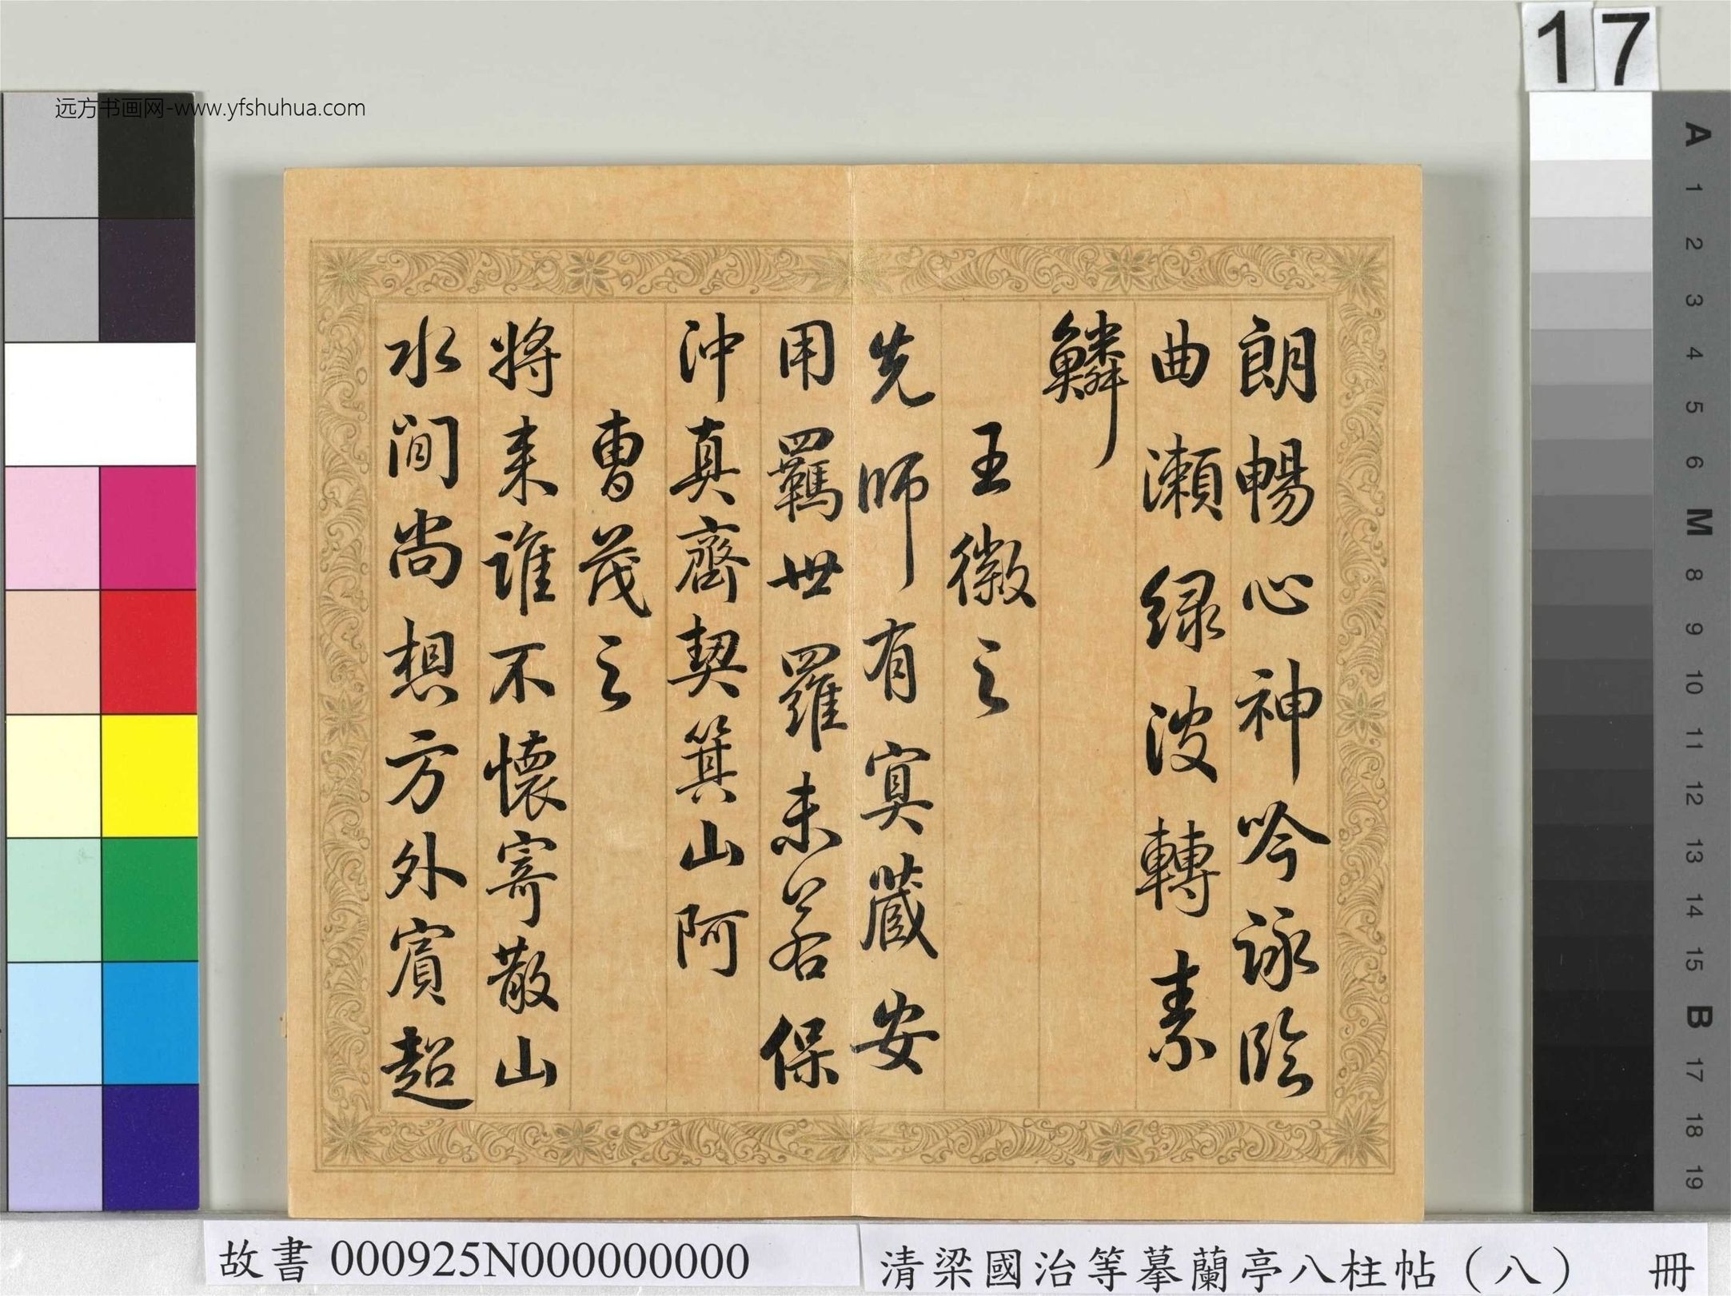 远方书画网-www.yfshuhua.com
17
朗暢心神吟詠臨
曲瀨綠波轉素
鱗
王徽之
先師有冥藏安
用羈世羅未若保
沖真齊契箕山阿
曹茂之
將来誰不懷寄散山
水間尚想方外賓超
A
1
2
3
4
5
6
M
8
9
10
11
12
13
14
15
B
17
18
19
故書 000925N000000000
清梁國治等摹蘭亭八柱帖（八） 冊